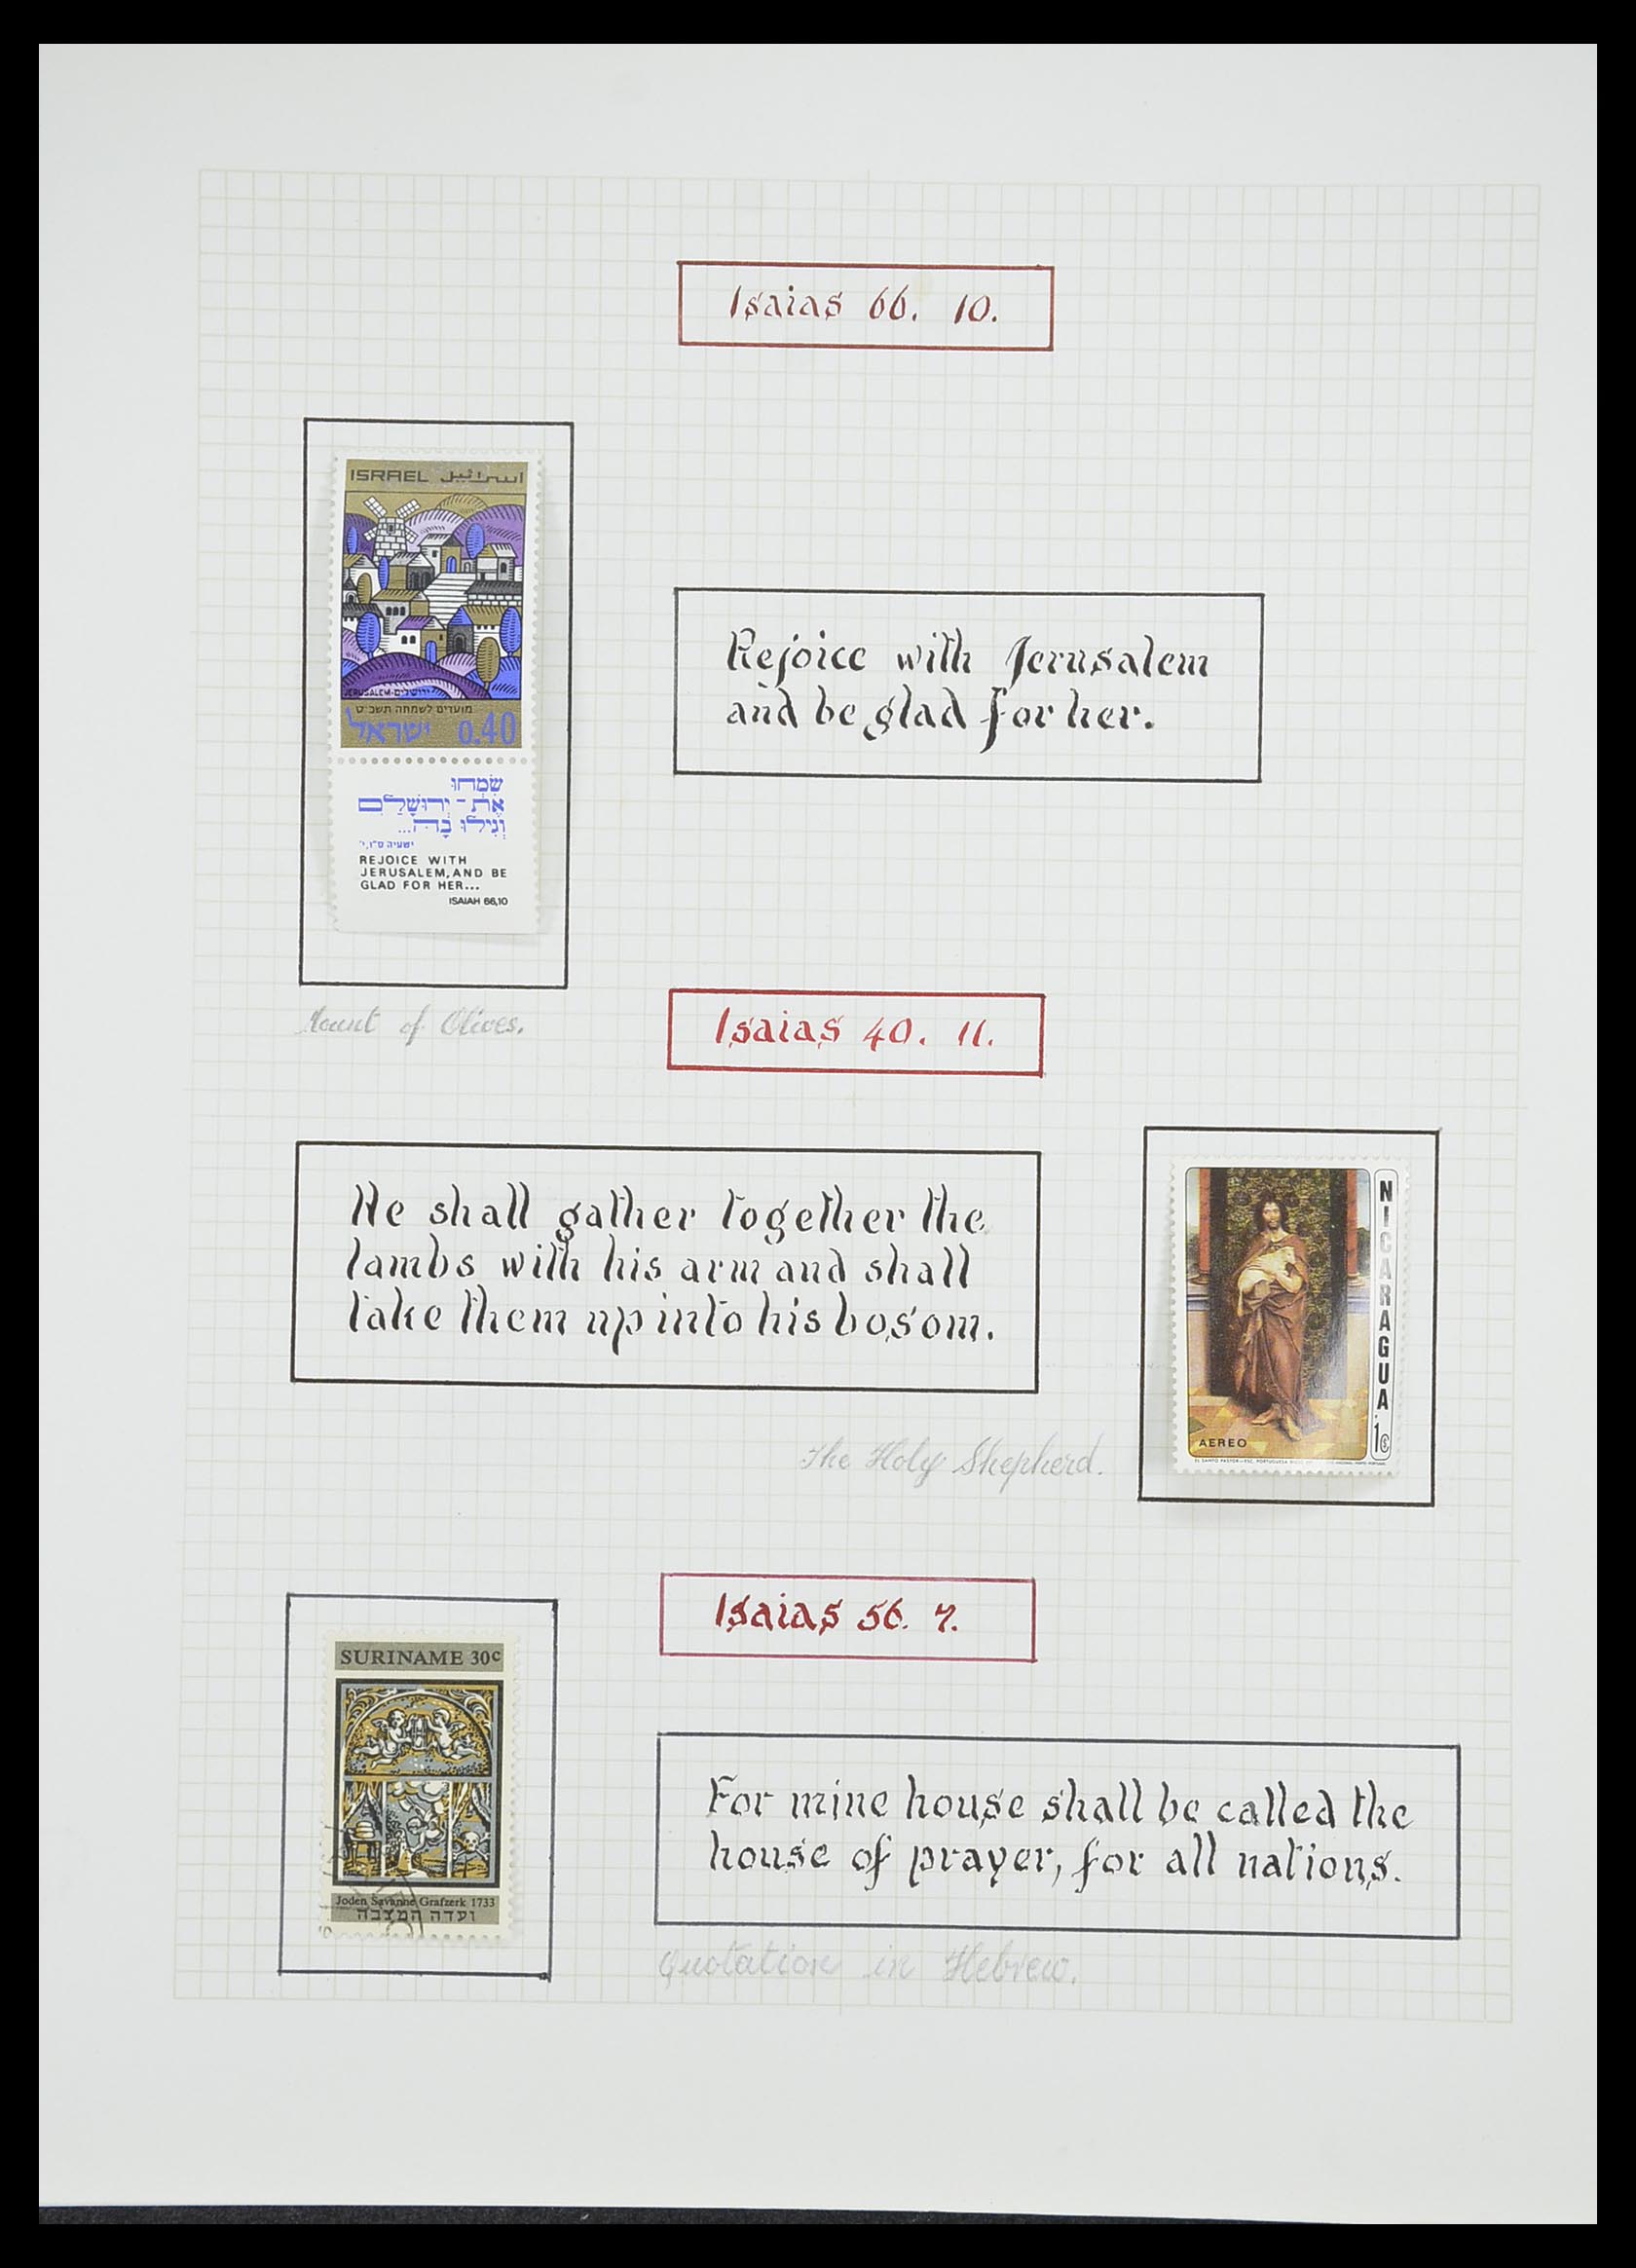 Isaias 66. 10.
ISRAEL اسرائيل
JERUSALEM-ירושלים
מועדים לשמחה תשכ"ט
ישראל 0.40
שִׂמְחוּ
אֶת-יְרוּשָׁלַיִם
וְגִילוּ בָהּ...
ישעיה ס"ו, י'
REJOICE WITH
JERUSALEM, AND BE
GLAD FOR HER...
ISAIAH 66,10
Rejoice with Jerusalem
and be glad for her.
Mount of Olives.
Isaias 40. 11.
He shall gather together the
lambs with his arm and shall
take them up into his bosom.
NICARAGUA 1¢
AEREO
EL SANTO PASTOR-ESC. PORTUGUESA
The Holy Shepherd.
Isaias 56. 7.
SURINAME 30c
Joden Savanne Grafzerk 1733
ועדה המצבה
For mine house shall be called the
house of prayer, for all nations.
Quotation in Hebrew.